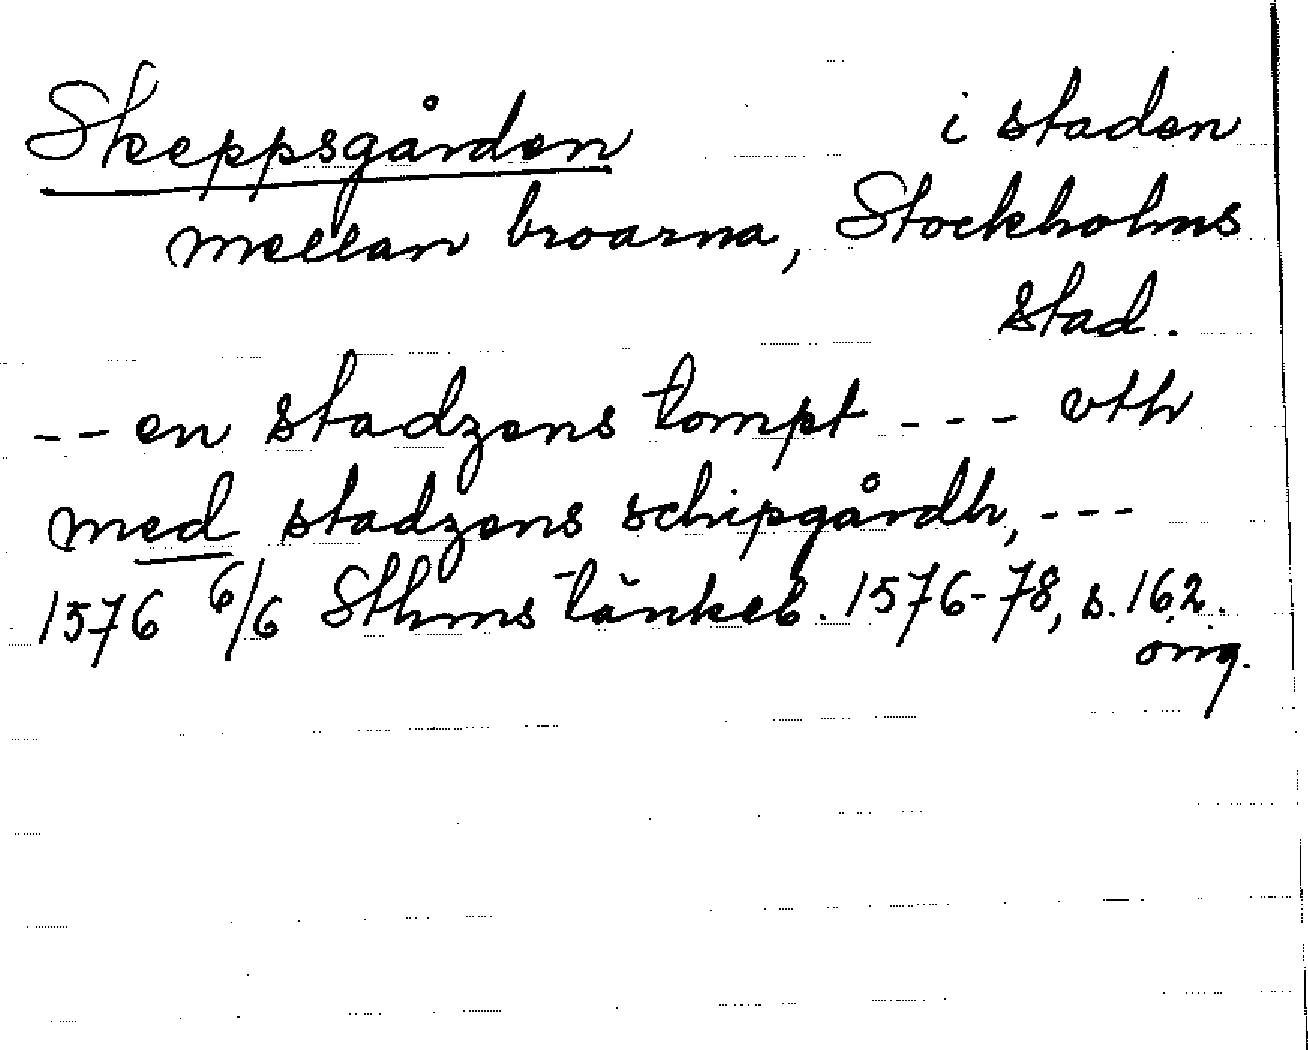 Skeppsgården i staden
mellan broarna, Stockholms
stad.
-- en stadzens tompt --- vth
med stadzens schipgårdh, ---
1576 6/6 Sthms tänkeb. 1576-78, s. 162.
orig.